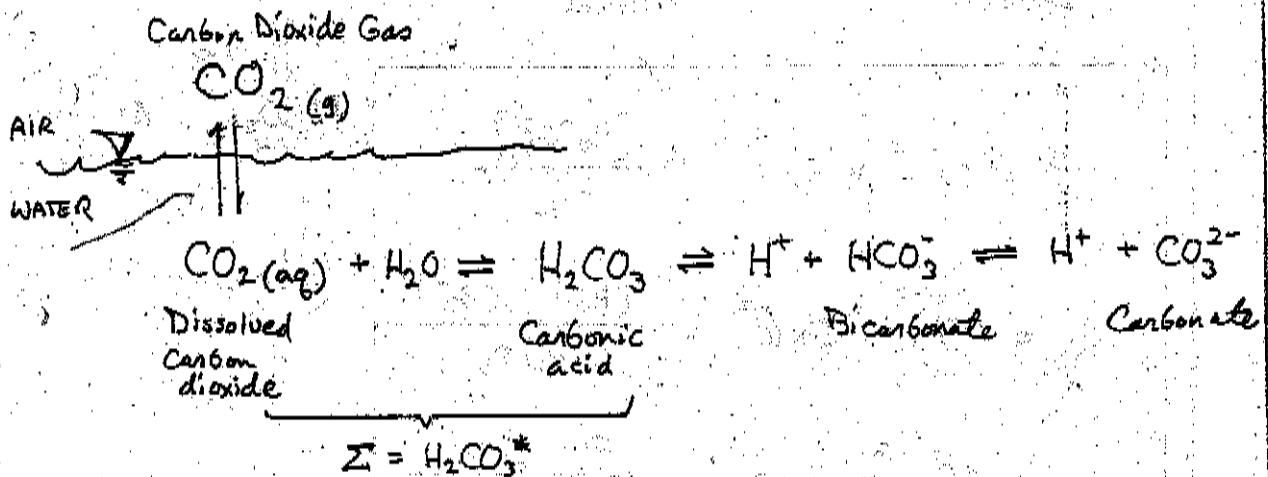 Carbon Dioxide Gas
CO₂ (g)
AIR
WATER
CO₂ (aq) + H₂O ⇌ H₂CO₃ ⇌ H⁺ + HCO₃⁻ ⇌ H⁺ + CO₃²⁻
Dissolved Carbonic Bicarbonate Carbonate
Carbon acid
dioxide
Σ = H₂CO₃*